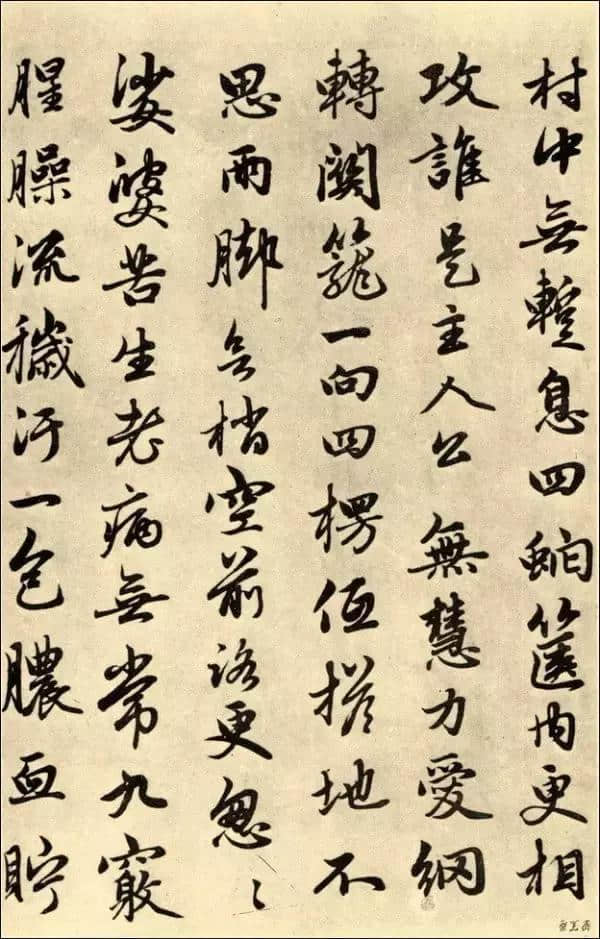 村中無暫息四虵篋內更相
攻誰是主人公無慧力愛網
轉關籠一向四楞但搭地不
思兩脚无梢空前路更怱〻
娑婆苦生老病無常九竅
腥臊流穢汙一包膿血貯